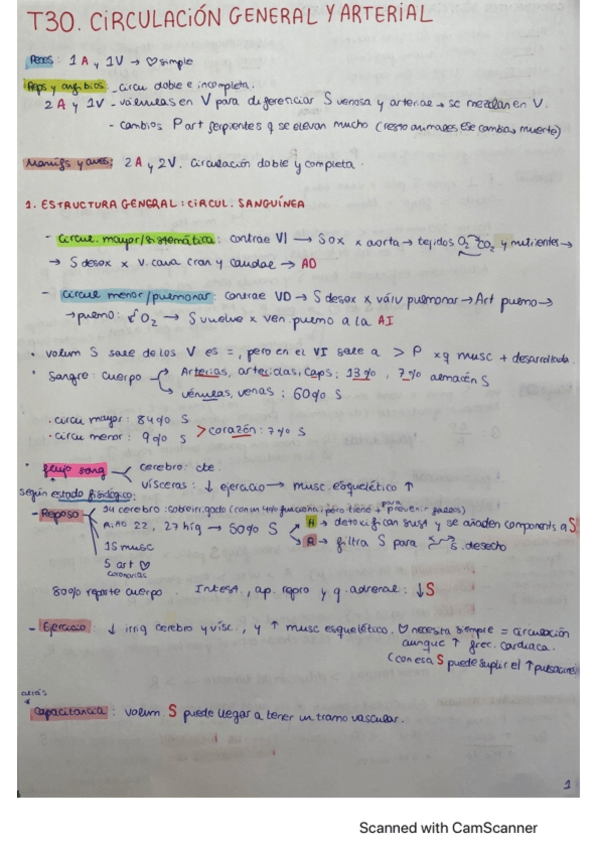 T30. CIRCULACIÓN GENERAL Y ARTERIAL
Peces: 1 A y 1V → ♡ simple
Reps y anfibios: - circu doble e incompleta.
2 A y 1V - válvulas en V para diferenciar S venosa y arterial → se mezclan en V.
- cambios P art serpientes q se elevan mucho (resto animales ese cambio → muerte)
Mamifs y aves: 2 A y 2V. Circulación doble y completa.
1. ESTRUCTURA GENERAL: CIRCUL. SANGUÍNEA
- Circul. mayor/sistemática: contrae VI → S ox x aorta → tejidos O2 CO2 y nutrientes →
→ S desox x v. cava cran y caudal → AD
- Circul menor/pulmonar: contrae VD → S desox x válv pulmonar → Art pulmo →
→ pulmo: O2 → S vuelve x ven pulmo a la AI
• volum S sale de los V es =, pero en el VI sale a > P xq musc + desarrollada.
• Sangre: cuerpo
Arterias, arteriolas, caps: 13%, 7% almacén S
vénulas, venas: 60% S
• circu mayor: 84% S
• circu menor: 9% S > corazón: 7% S
• flujo sang
cerebro: cte.
vísceras: ↓ ejercicio → musc esquelético ↑
según estado fisiológico:
- Reposo
14 cerebro: sobreirrigado (con un 4% funciona, pero tiene + para prevenir fallos)
22, 27 hig → 50% S
H → detoxifican sust y se añaden components a S
R → filtra S para s. desecho
15 musc
5 art ♡
coronarias
80% reparte cuerpo. Intest, ap. repro y g. adrenal: ↓S
- Ejercicio: ↓ irrig cerebro y vísc, y ↑ musc esquelético. ♡ necesita siempre = circulación
aunque ↑ frec. cardiaca.
(con esa S puede suplir el ↑ pulsaciones)
Capacitancia: volum. S puede llegar a tener un tramo vascular.
1
Scanned with CamScanner